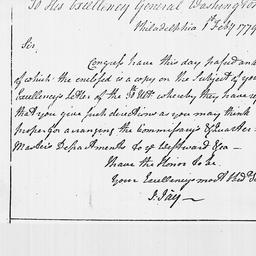 To His Excellency General Washington
Philadelphia 1st Feby 1779
Sir
Congress have this day passed an
of which the enclosed is a copy on the Subject of your
Excellency's Letter of the Ult whereby they have re
that you give such directions as you may think
proper for arranging the Commissary's & Quarter
Master's Departments to ye Westward &ca
I have the Honor to be
Your Excellency's most Obed S
J. Jay